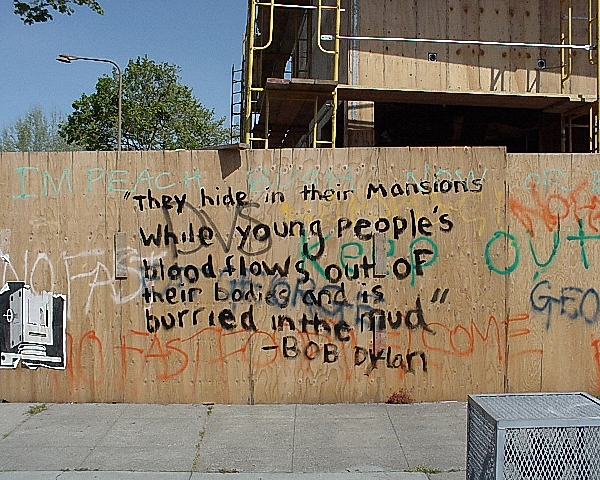 IMPEACH BUSH NOW OR
"They hide in their Mansions
While young people's
blood flows out of
their bodies and is
burried in the mud"
-BOB Dylan
DVS
Keep Out
NO FAS
GEO
NO FAST FOOD WELCOME